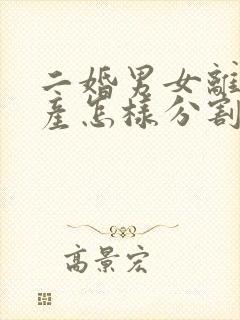 二婚男女離
産怎樣分割
高景宏